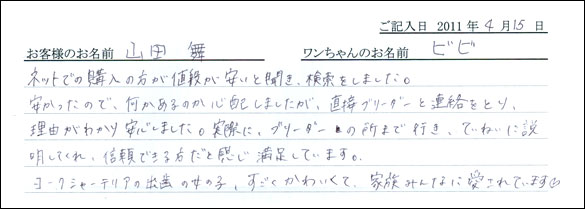 ご記入日 2011年4月15日
お客様のお名前 山田 舞 ワンちゃんのお名前 ビビ
ネットでの購入の方が値段が安いと聞き、検索をしました。
安かったので、何かあるのか心配しましたが、直接ブリーダーと連絡をとり、
理由がわかり安心しました。実際に、ブリーダーの所まで行き、ていねいに説
明してくれ、信頼できる方だと感じ満足しています。
ヨークシャーテリアの出歯の女の子、すごくかわいくて、家族みんなに愛されています